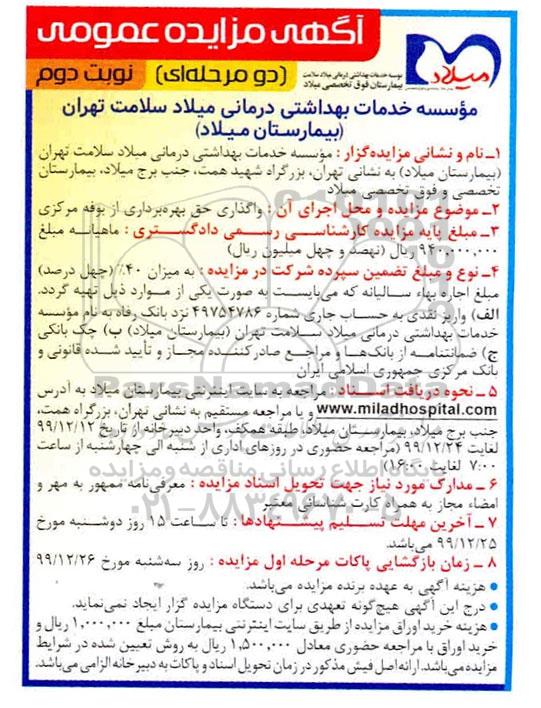 آگهی مزایده عمومی
(دو مرحله‌ای) نوبت دوم
میلاد
موسسه خدمات بهداشتی درمانی میلاد سلامت
بیمارستان فوق تخصصی میلاد
مؤسسه خدمات بهداشتی درمانی میلاد سلامت تهران
(بیمارستان میلاد)
۱ـ نام و نشانی مزایده‌گزار : مؤسسه خدمات بهداشتی درمانی میلاد سلامت تهران
(بیمارستان میلاد) به نشانی تهران، بزرگراه شهید همت، جنب برج میلاد، بیمارستان
تخصصی و فوق تخصصی میلاد
۲ـ موضوع مزایده و محل اجرای آن : واگذاری حق بهره‌برداری از بوفه مرکزی
۳ـ مبلغ پایه مزایده کارشناسی رسمی دادگستری : ماهیانه مبلغ
۹۴۰،۰۰۰،۰۰۰ ریال (نهصد و چهل میلیون ریال)
۴ـ نوع و مبلغ تضمین سپرده شرکت در مزایده : به میزان ۴۰٪ (چهل درصد)
مبلغ اجاره بهاء سالیانه که می‌بایست به صورت یکی از موارد ذیل تهیه گردد.
الف) واریز نقدی به حساب جاری شماره ۴۹۷۵۴۷۸۶ نزد بانک رفاه به نام مؤسسه
خدمات بهداشتی درمانی میلاد سلامت تهران (بیمارستان میلاد) ب) چک بانکی
ج) ضمانتنامه از بانک‌ها و مراجع صادرکننده مجاز و تأیید شده قانونی و
بانک مرکزی جمهوری اسلامی ایران
۵ ـ نحوه دریافت اسناد : مراجعه به سایت اینترنتی بیمارستان میلاد به آدرس
www.miladhospital.com و یا مراجعه مستقیم به نشانی تهران، بزرگراه همت،
جنب برج میلاد، بیمارستان میلاد، طبقه همکف، واحد دبیرخانه از تاریخ ۹۹/۱۲/۱۲
لغایت ۹۹/۱۲/۲۴ (مراجعه حضوری در روزهای اداری از شنبه الی چهارشنبه از ساعت
۷:۰۰ لغایت ۱۶:۰۰)
۶ ـ مدارک مورد نیاز جهت تحویل اسناد مزایده : معرفی‌نامه ممهور به مهر و
امضاء مجاز به همراه کارت شناسائی معتبر
۷ ـ آخرین مهلت تسلیم پیشنهادها : تا ساعت ۱۵ روز دوشنبه مورخ
۹۹/۱۲/۲۵ می‌باشد.
۸ ـ زمان بازگشایی پاکات مرحله اول مزایده : روز سه‌شنبه مورخ ۹۹/۱۲/۲۶
● هزینه آگهی به عهده برنده مزایده می‌باشد.
● درج این آگهی هیچ‌گونه تعهدی برای دستگاه مزایده گزار ایجاد نمی‌نماید.
● هزینه خرید اوراق مزایده از طریق سایت اینترنتی بیمارستان مبلغ ۱،۰۰۰،۰۰۰ ریال و
خرید اوراق با مراجعه حضوری معادل ۱،۵۰۰،۰۰۰ ریال به روش تعیین شده در شرایط
مزایده می‌باشد. ارائه اصل فیش مذکور در زمان تحویل اسناد و پاکات به دبیرخانه الزامی می‌باشد.
ParsNamadData
پایگاه اطلاع رسانی مناقصه و مزایده
۰۲۱-۸۸۳۴۹۶۷۰-۵